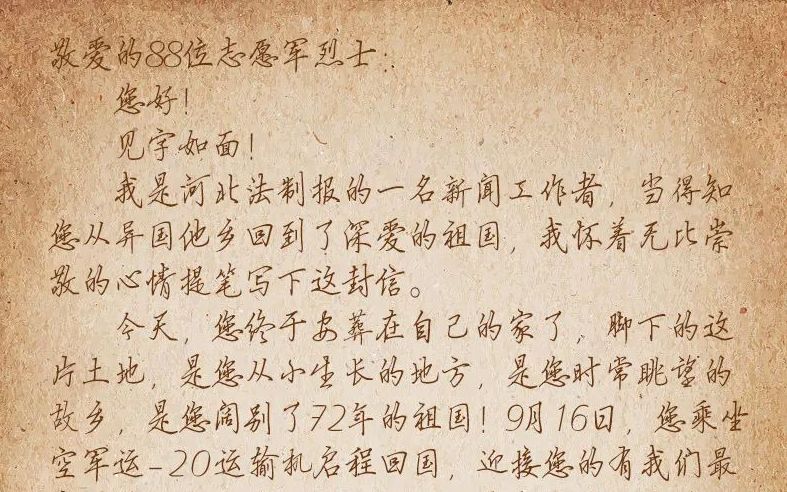 敬爱的88位志愿军烈士：
您好！
见字如面！
我是河北法制报的一名新闻工作者，当得知
您从异国他乡回到了深爱的祖国，我怀着无比崇
敬的心情提笔写下这封信。
今天，您终于安葬在自己的家了，脚下的这
片土地，是您从小生长的地方，是您时常眺望的
故乡，是您阔别了72年的祖国！9月16日，您乘坐
空军运-20运输机启程回国，迎接您的有我们最